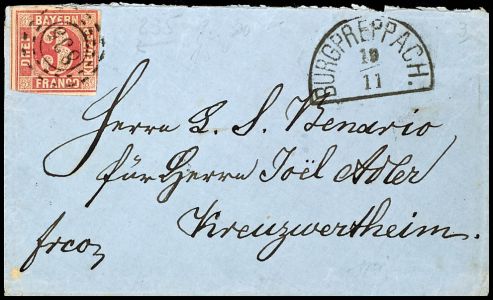 BAYERN
DREI
KREUZER
FRANCO
BURGPREPPACH.
10
11
Herrn L. S. Benario
für Herrn Joël Adler
Kreuzwertheim.
frco